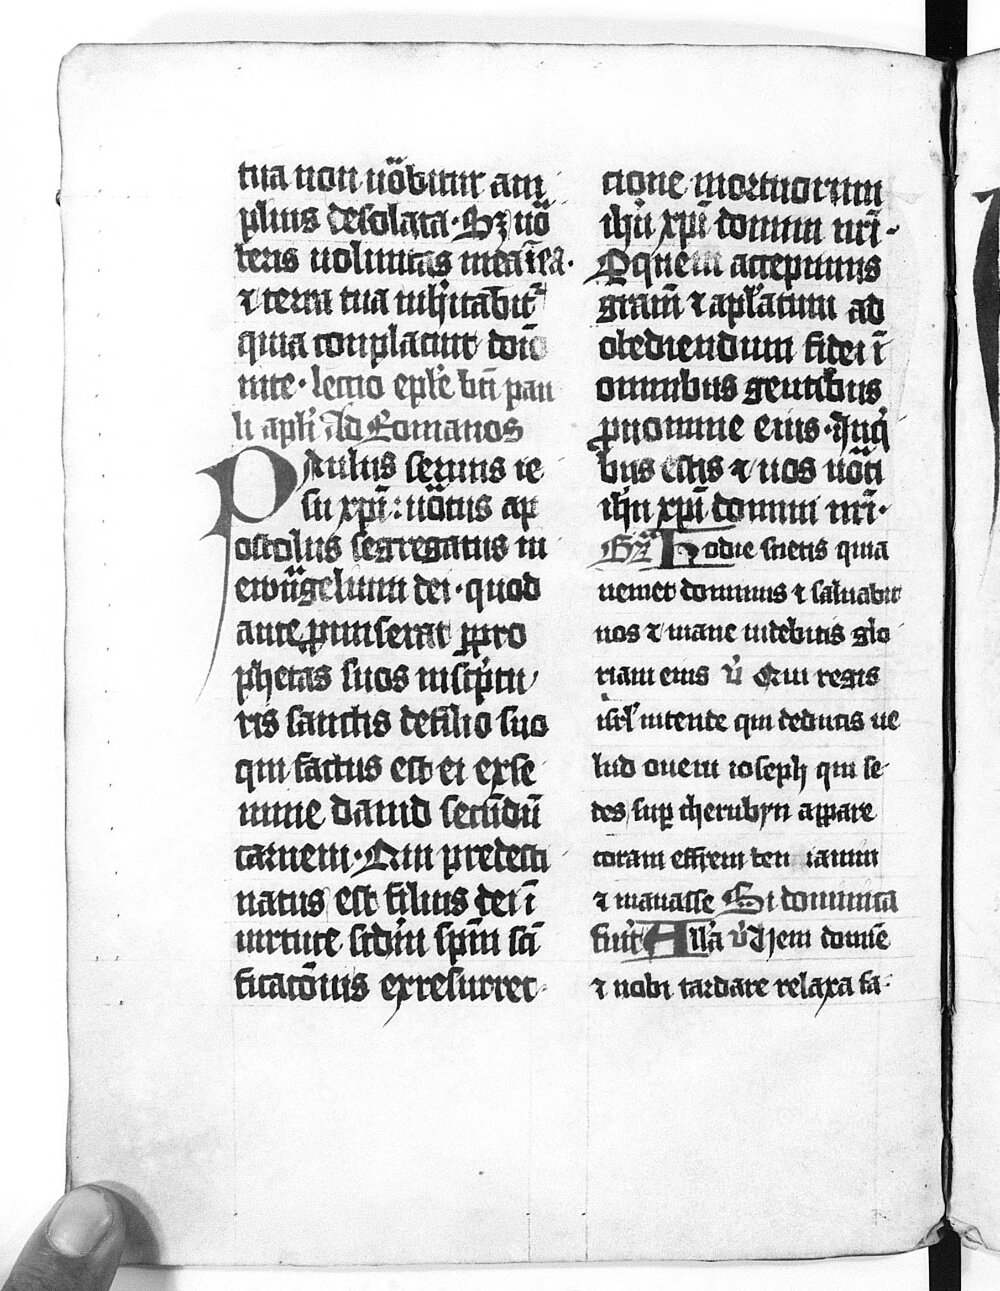 tua non uo̅bitur am
plius desolata · Sz uo̅
teris uoluntas mea i̅ ea ·
⁊ terra tua inh̓itabit᷑
quia conplacuit do̅io
inte · lectio epl̅e bt̅i pau
li apl̅i Ad Romanos
Paulus seruus ie
su xp̅i : uo̅tus ap
ostolus segregatus in
ewu̅gelium dei · quod
ante ꝓmiserat ꝑ pro
phetas suos in sc̅ptu
ris sanctis de filio suo
qui factus est ei ex se
mine dauid secu̅du̅
carnem · Qui predesti
natus est filius dei i̅
uirtute scd̅m sp̅m sc̅i
ficato̅nis ex resurrec
cione mortuorum
ih̅u xp̅i domini nr̅i ·
Per quem accepimus
gram̅ ⁊ apl̅atum ad
obediendum fidei i̅
omnibus gentibus
ꝓ nomine eius · Jn qi
bus estis ⁊ uos uo̅ti
ih̅u xp̅i domini nr̅i ·
Gr̅ Hodie scietis quia
ueniet dominus ⁊ saluabit
nos ⁊ mane uidebitis glo
riam eius v̓ Qui regis
isrl̅ intende qui deducis ue
lud ouem ioseph qui se
des suꝑ cherubyn appare
coram effrem ben iamin
⁊ manasse Si dominica
fuit᷑ All̅a v̓ Ueni domi̅e
⁊ noli tardare relaxa fa